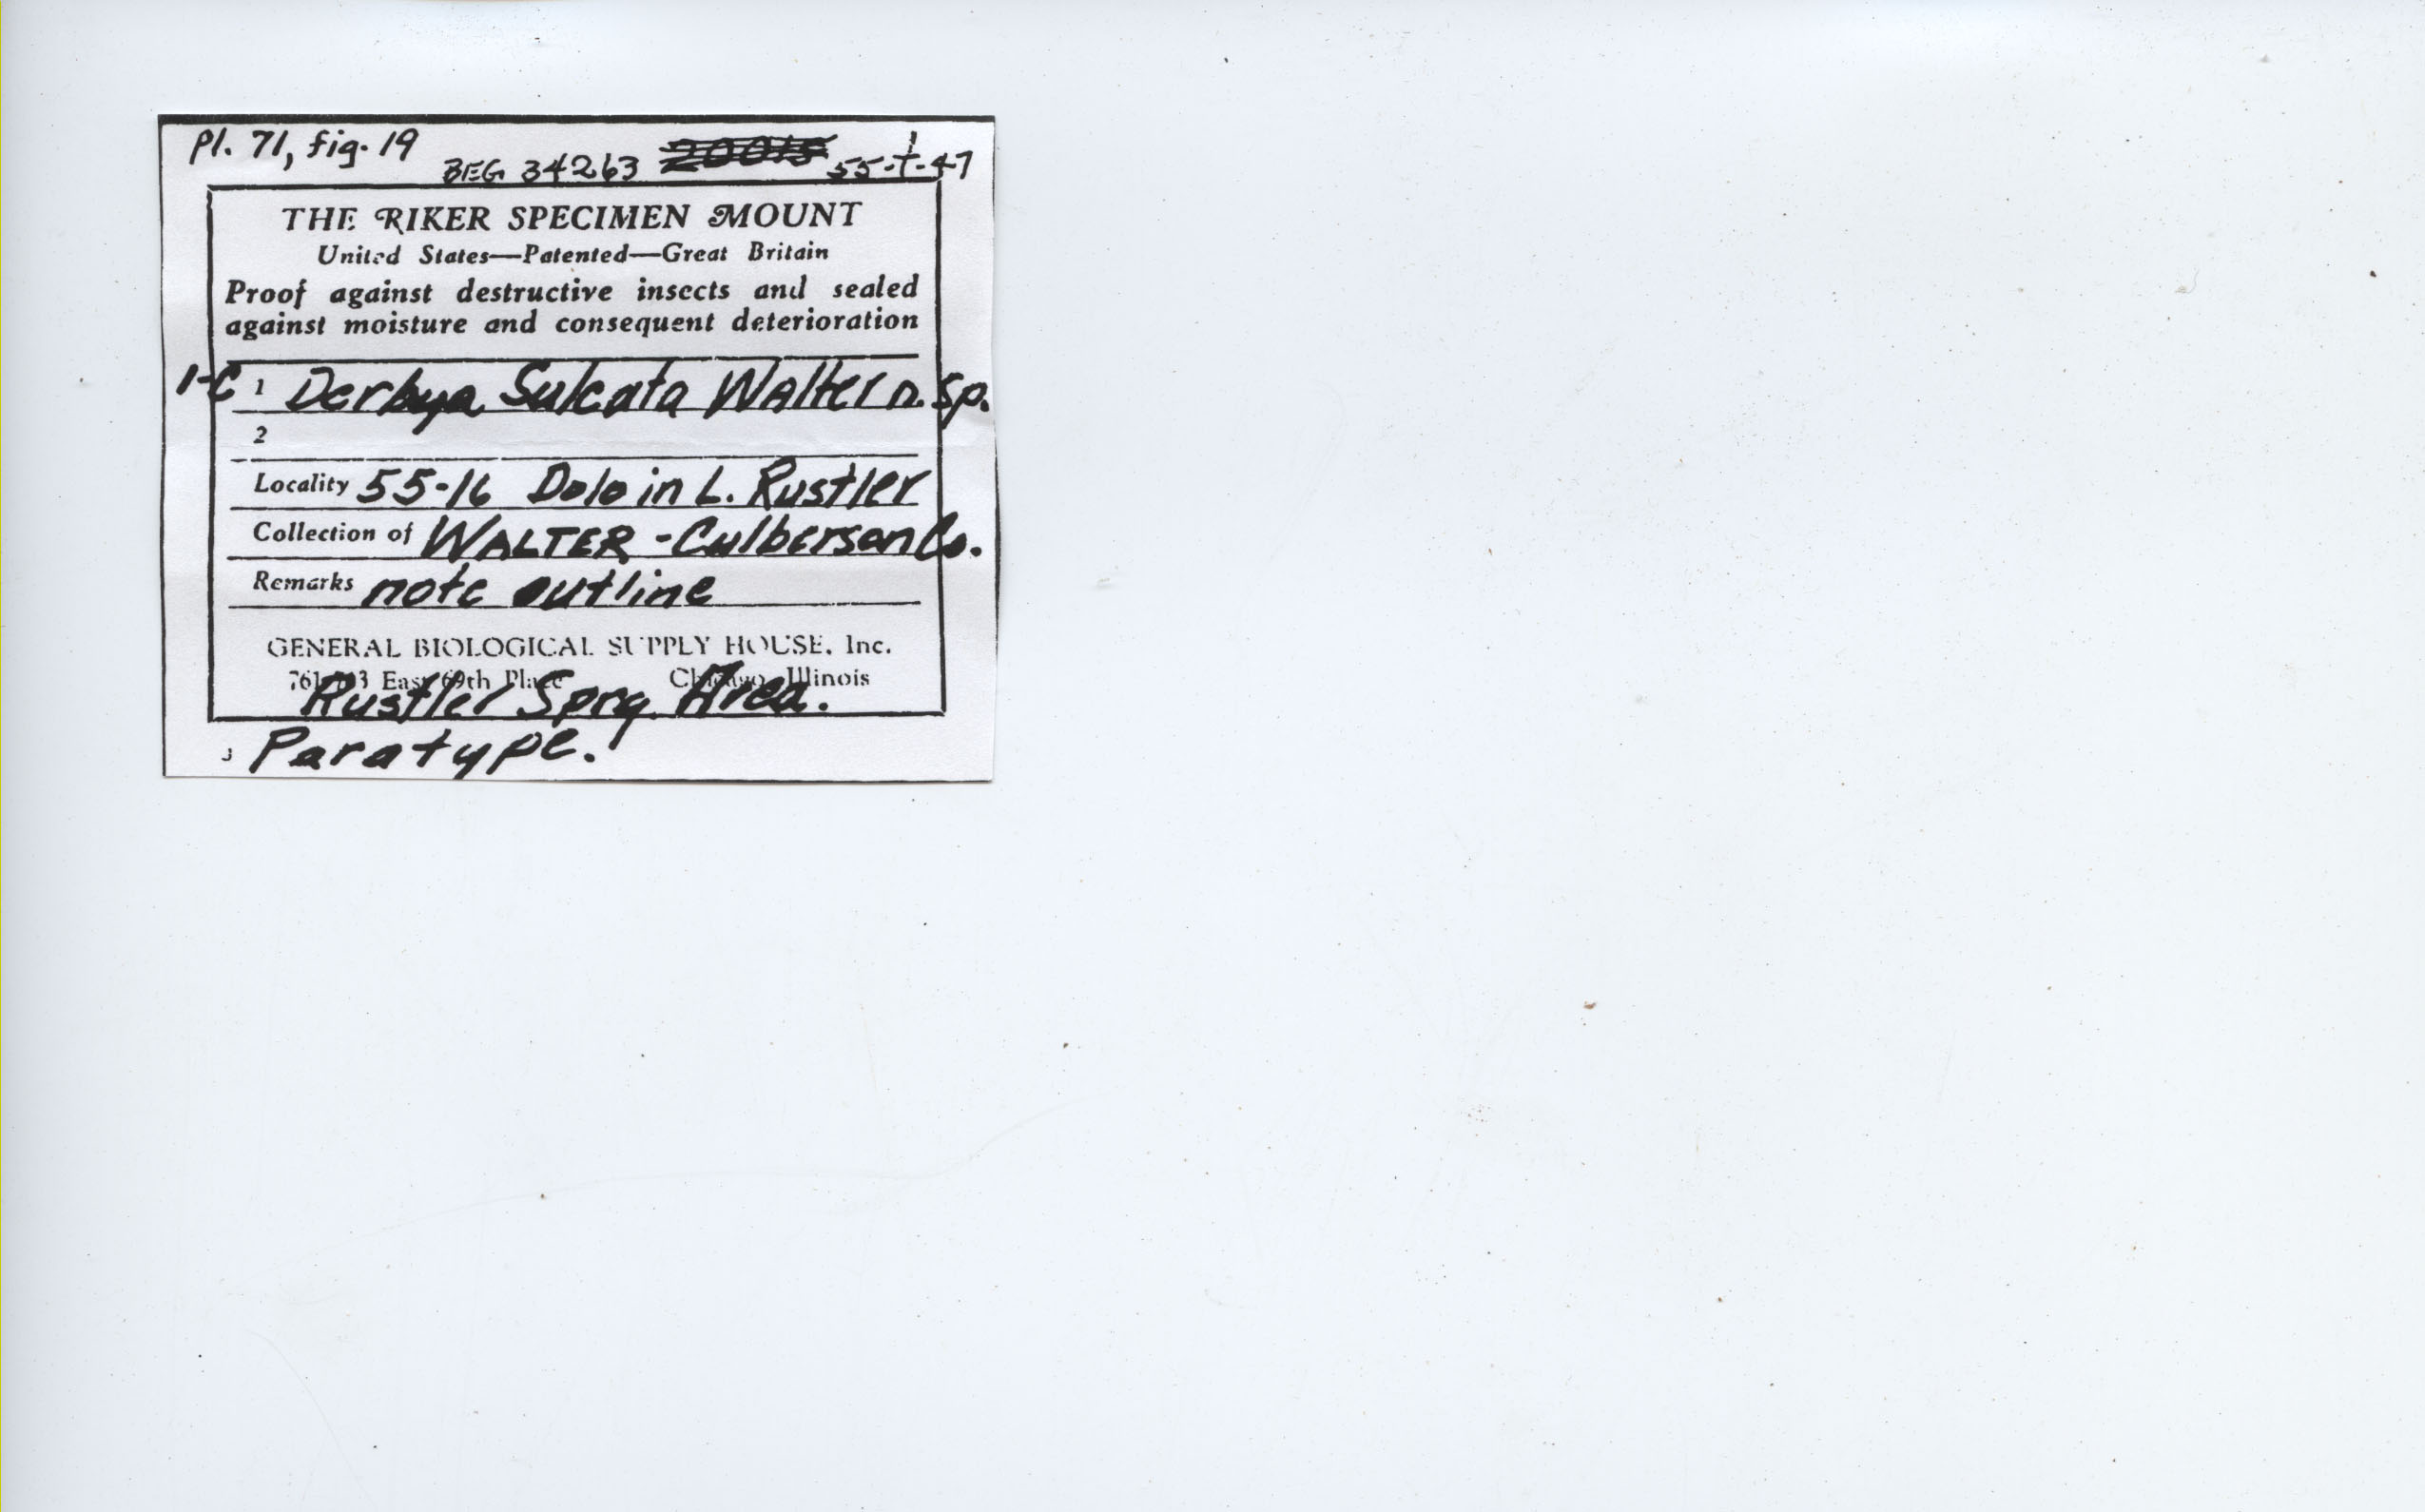 Pl. 71, fig. 19
BEG 34263 55-T-47
THE RIKER SPECIMEN MOUNT
United States—Patented—Great Britain
Proof against destructive insects and sealed
against moisture and consequent deterioration
1-C 1 Derbya Sulcata Walter n. sp.
2
Locality 55-16 Dolo in L. Rustler
Collection of WALTER - Culberson Co.
Remarks note outline
GENERAL BIOLOGICAL SUPPLY HOUSE, Inc.
East 69th Place Chicago, Illinois
Rustler Sprg. Area.
Paratype.